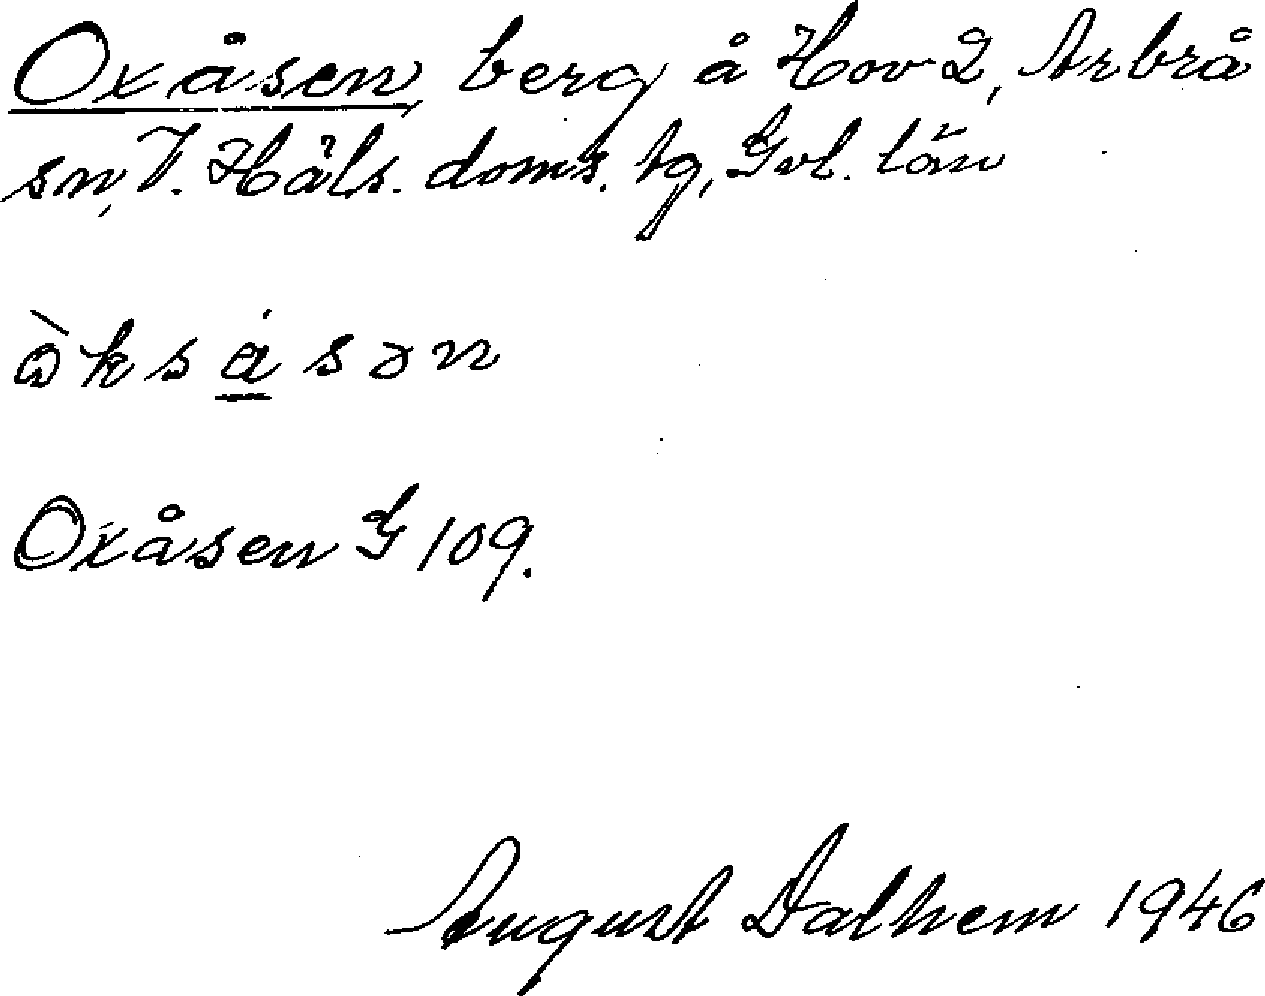 Oxåsen, berg å Hov 2, Arbrå
sn, V. Häls. doms. tg, Gvl. län
ò̱ksásən
Oxåsen G 109.
August Dalhem 1946